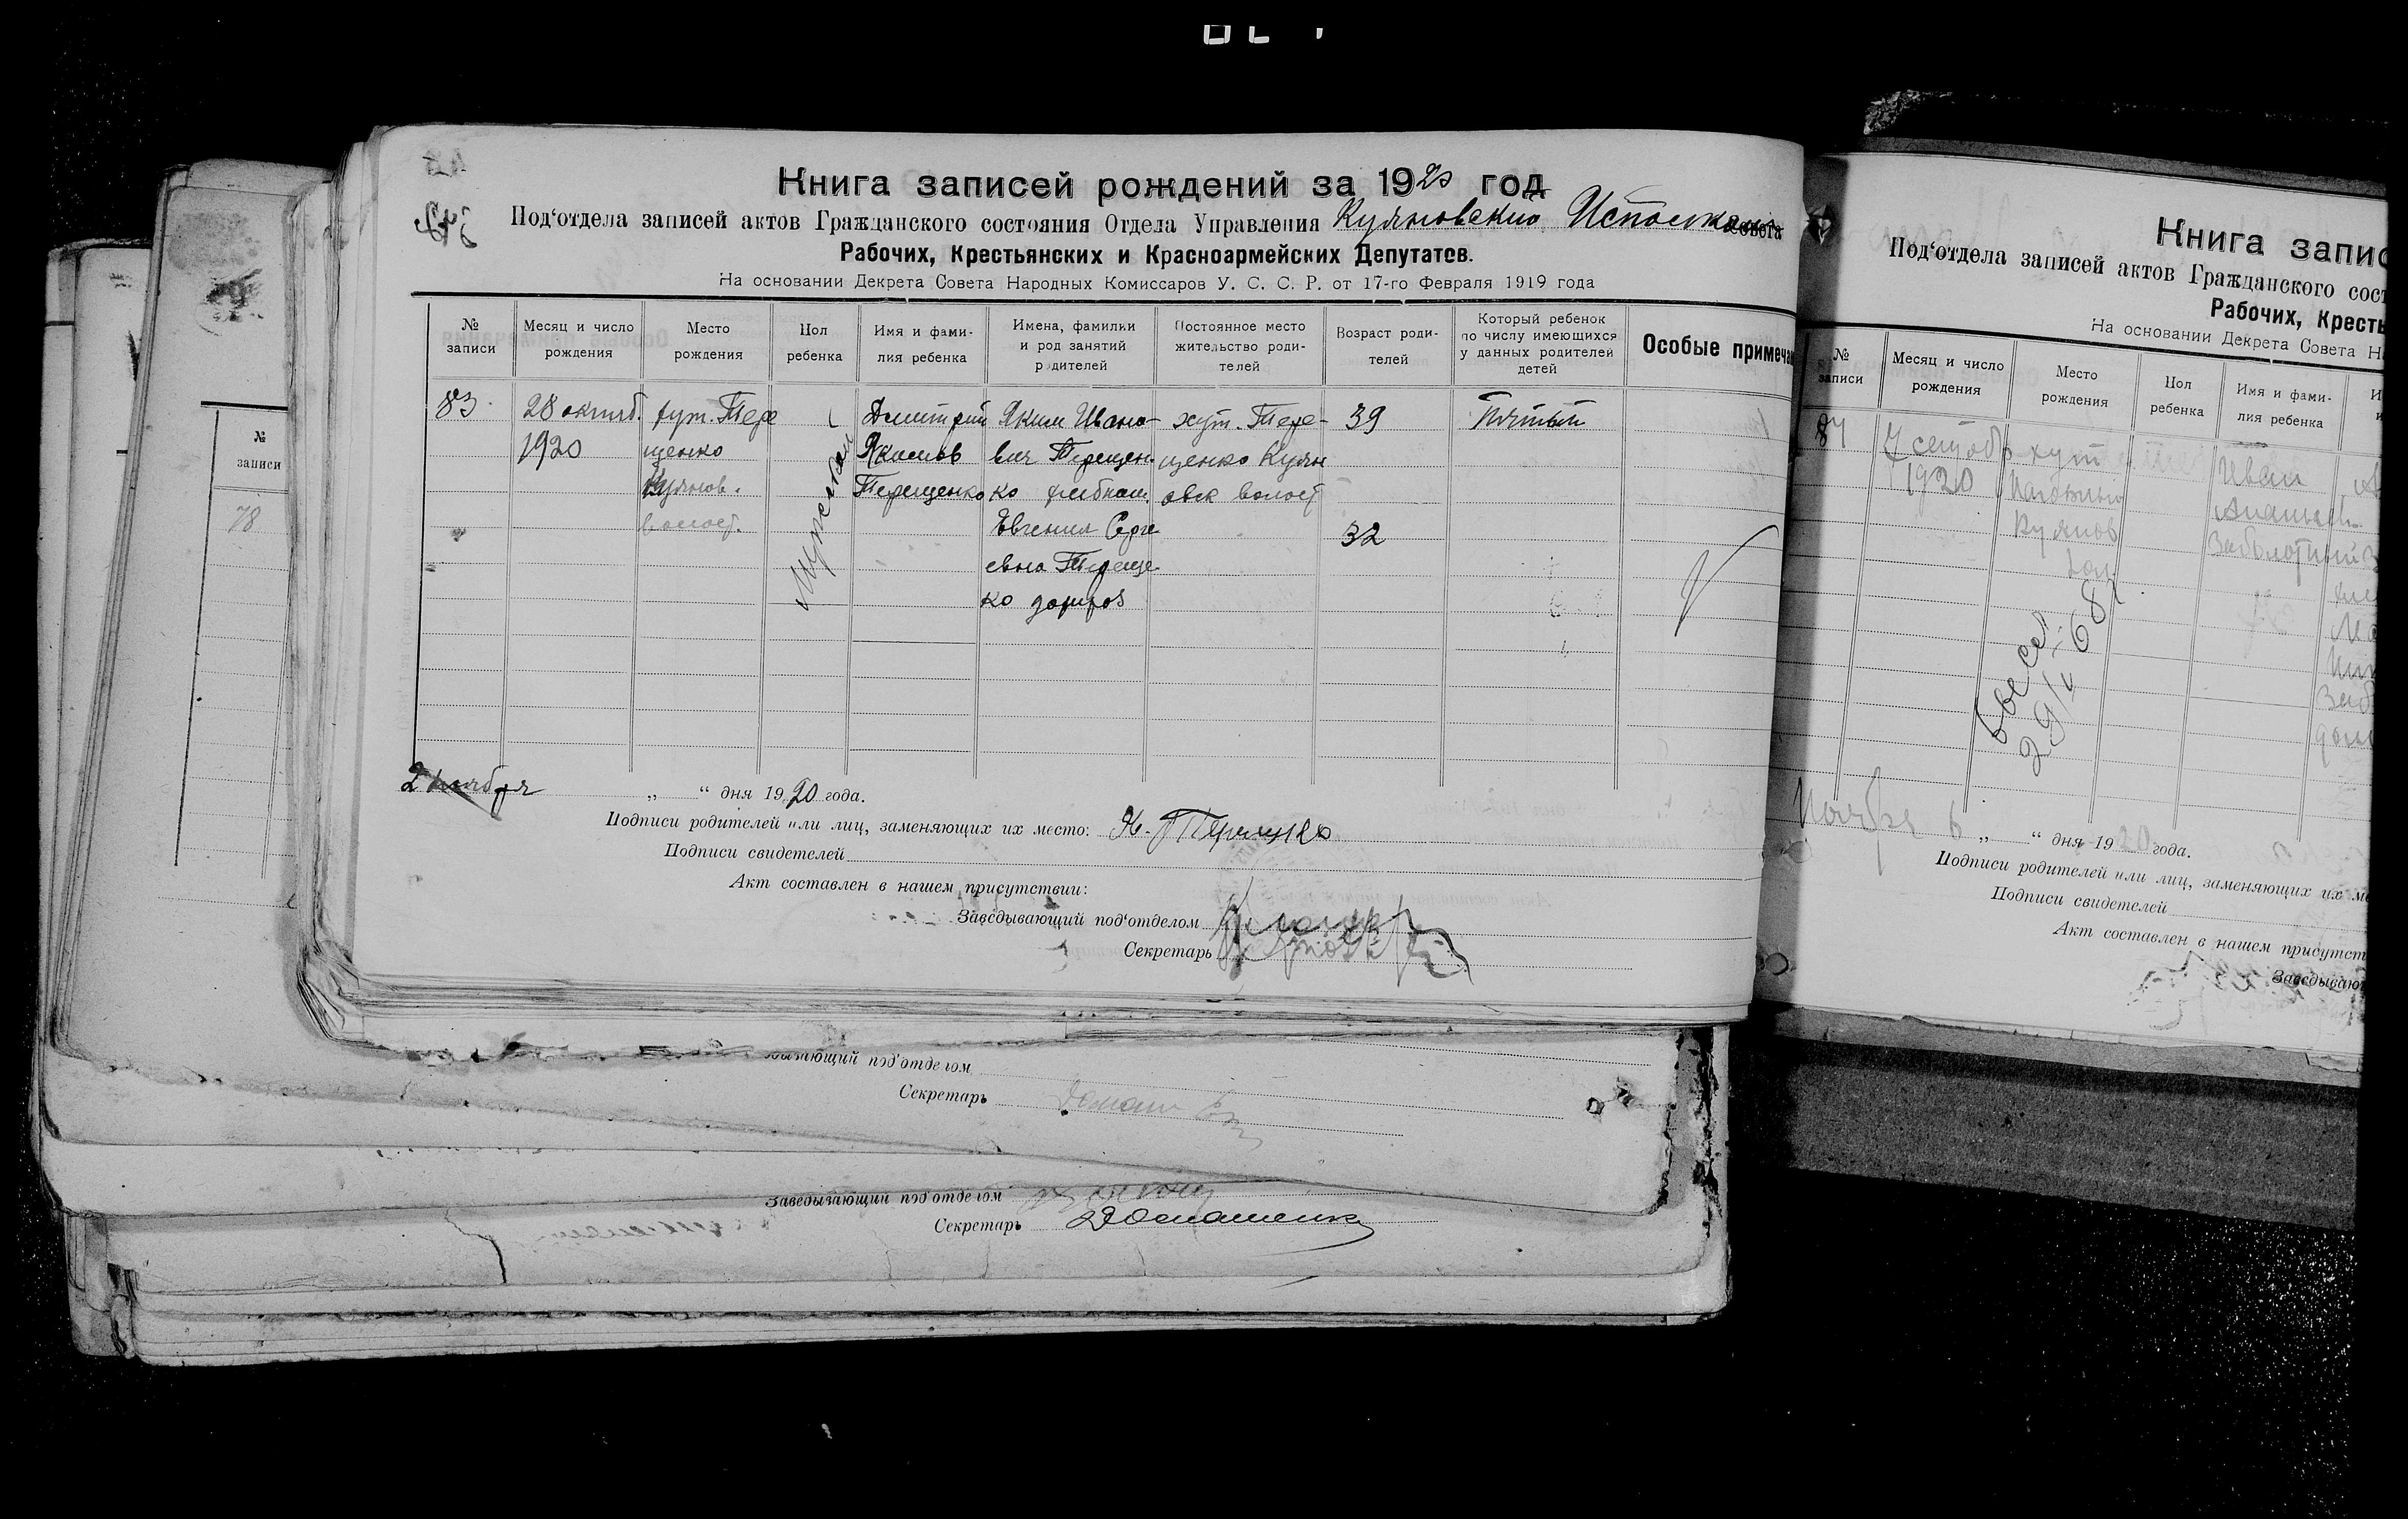 Книга записей рождений за 1920 год
Под‘отдела записей актов Гражданского состояния Отдела Управления Куяновский Исполком Совета
Рабочих, Крестьянских и Красноармейских Депутатов.
На основании Декрета Совета Народных Комиссаров У. С. С. Р. от 17-го Февраля 1919 года
№ записи
Месяц и число рождения
Место рождения
Пол ребенка
Имя и фамилия ребенка
Имена, фамилии и род занятий родителей
Постоянное место жительство родителей
Возраст родителей
Который ребенок по числу имеющихся у данных родителей детей
Особые примечан
83
28 октяб.
1920
хут. Тере
щенко
Куянов.
волост.
Мужской
Дмитрий
Якимов
Терещенко
Яким Ивано-
вич Терещен-
ко хлебпаш.
Евгения Серге
евна Тереще
ко
хут. Тере-
щенко Куян
овск волост
39
32
Пятый
2 ноября „ “ дня 1920 года.
Подписи родителей или лиц, заменяющих их место: Я. Терещенко
Подписи свидетелей
Акт составлен в нашем присутствии:
Заведывающий под‘отделом
Секретарь
Книга запис
Под‘отдела записей актов Гражданского сост
Рабочих, Кресть
На основании Декрета Совета Н
№ записи
Месяц и число рождения
Место рождения
Пол ребенка
Имя и фами-
лия ребенка
87
1920
хут
Куянов
Иван
29/V 68
Ноября 6 „ “ дня 1920 года.
Подписи родителей или лиц, заменяющих их ме
Подписи свидетелей
Акт составлен в нашем присутст
Заведываю
№
записи
78
вающий под‘отделом
Секретарь
Заведывающий под‘отделом
Секретарь Домашенко